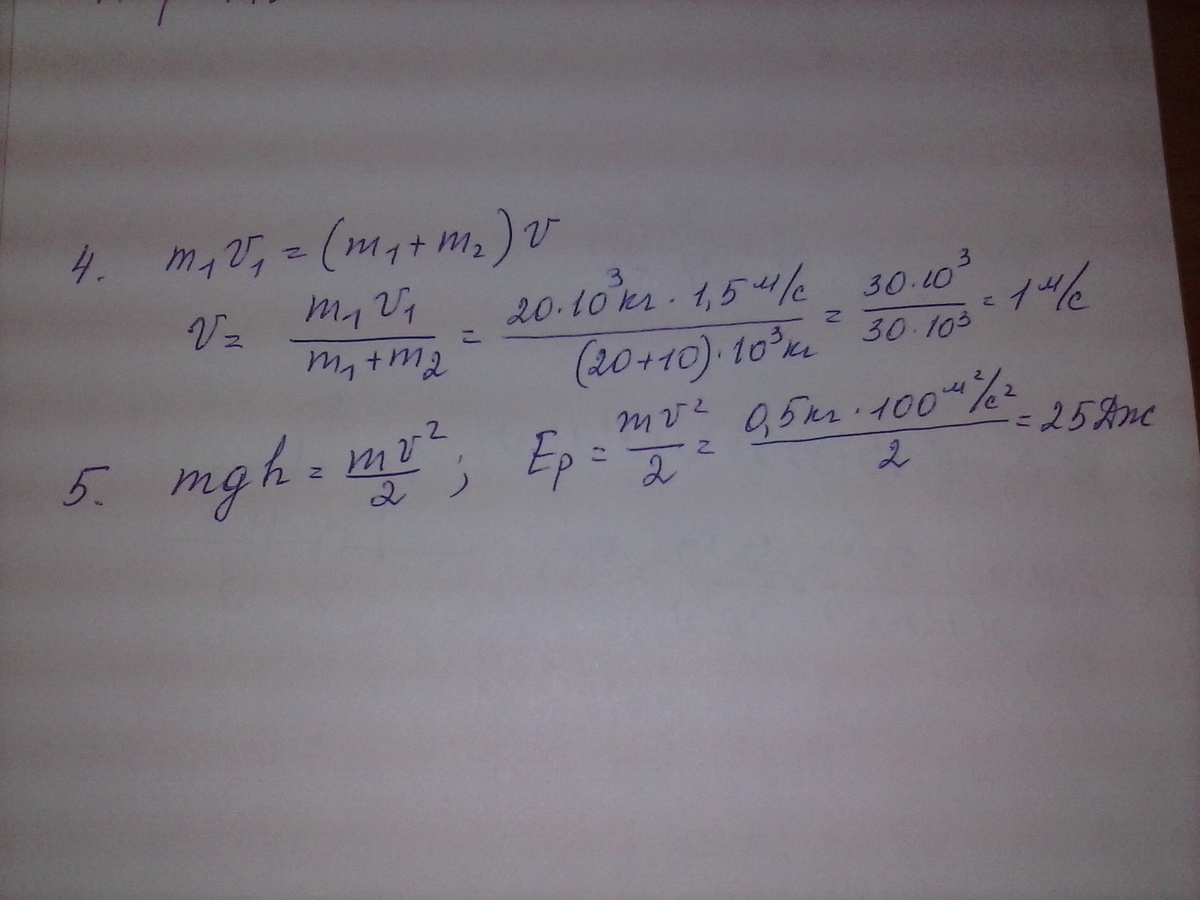 4. m₁v₁ = (m₁ + m₂)v
v = m₁v₁ / m₁ + m₂ = 20·10³кг · 1,5 м/с / (20+10)·10³кг = 30·10³ / 30·10³ = 1 м/с
5. mgh = mv² / 2 ; Eр = mv² / 2 = 0,5кг · 100 м²/с² / 2 = 25 Дж